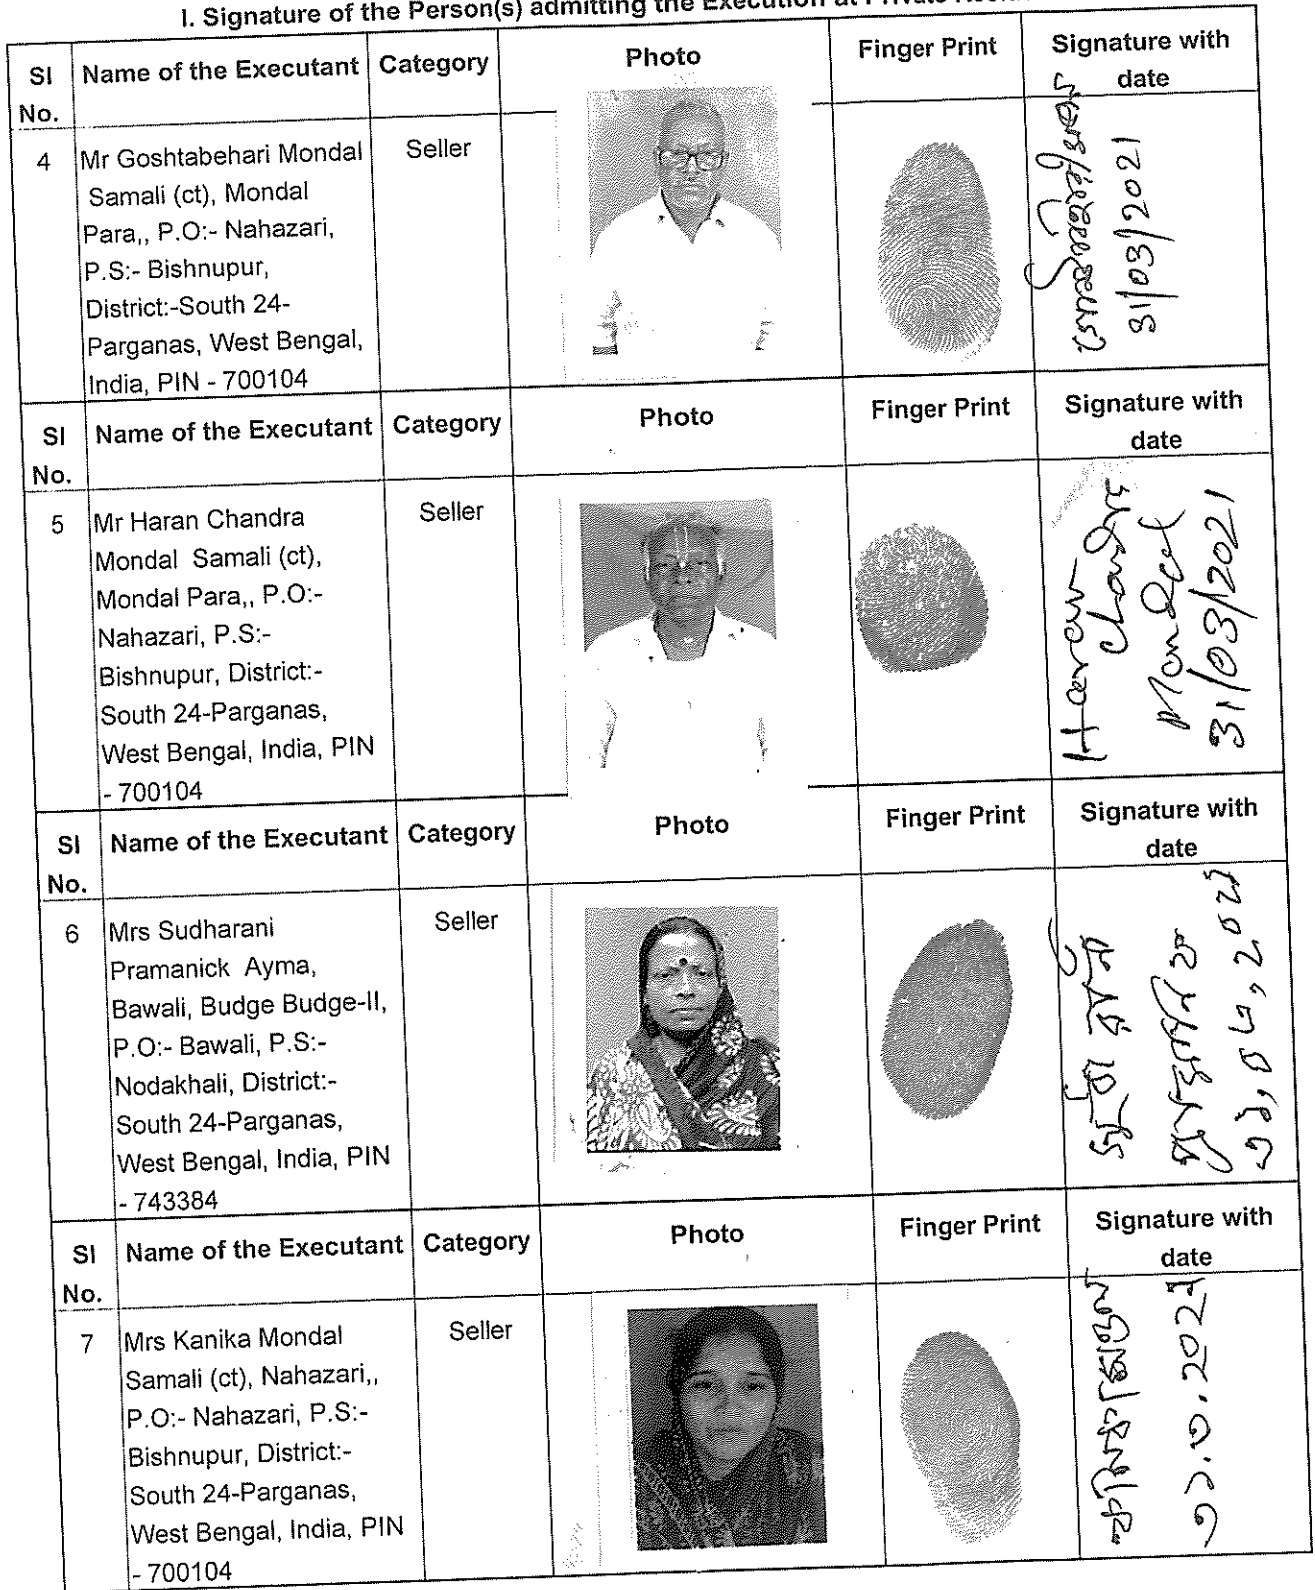 I. Signature of the Person(s) admitting the Execution at Private
Sl No. Name of the Executant Category Photo Finger Print Signature with date
4 Mr Goshtabehari Mondal Seller
Samali (ct), Mondal
Para,, P.O:- Nahazari,
P.S:- Bishnupur,
District:-South 24-
Parganas, West Bengal,
India, PIN - 700104
গোষ্ঠবিহারী মণ্ডল
31/03/2021
Sl No. Name of the Executant Category Photo Finger Print Signature with date
5 Mr Haran Chandra Seller
Mondal Samali (ct),
Mondal Para,, P.O:-
Nahazari, P.S:-
Bishnupur, District:-
South 24-Parganas,
West Bengal, India, PIN
- 700104
Haran
Chandra
Mondal
31/03/2021
Sl No. Name of the Executant Category Photo Finger Print Signature with date
6 Mrs Sudharani Seller
Pramanick Ayma,
Bawali, Budge Budge-II,
P.O:- Bawali, P.S:-
Nodakhali, District:-
South 24-Parganas,
West Bengal, India, PIN
- 743384
প্রামানিক
Sl No. Name of the Executant Category Photo Finger Print Signature with date
7 Mrs Kanika Mondal Seller
Samali (ct), Nahazari,,
P.O:- Nahazari, P.S:-
Bishnupur, District:-
South 24-Parganas,
West Bengal, India, PIN
- 700104
কনিকা মণ্ডল